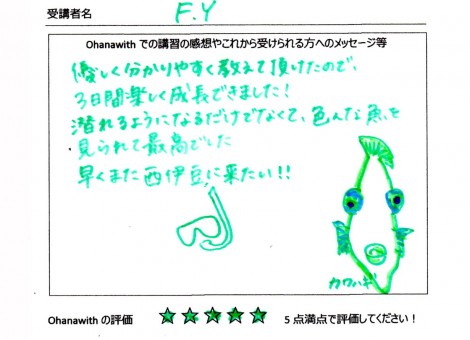 受講者名 F.Y
Ohanawith での講習の感想やこれから受けられる方へのメッセージ等
優しく分かりやすく教えて頂けたので、
3日間楽しく成長できました!
潜れるようになるだけでなくて、色んな魚を
見られて最高でした
早くまた西伊豆に来たい!!
カワハギ
Ohanawith の評価 ☆☆☆☆☆ 5 点満点で評価してください!